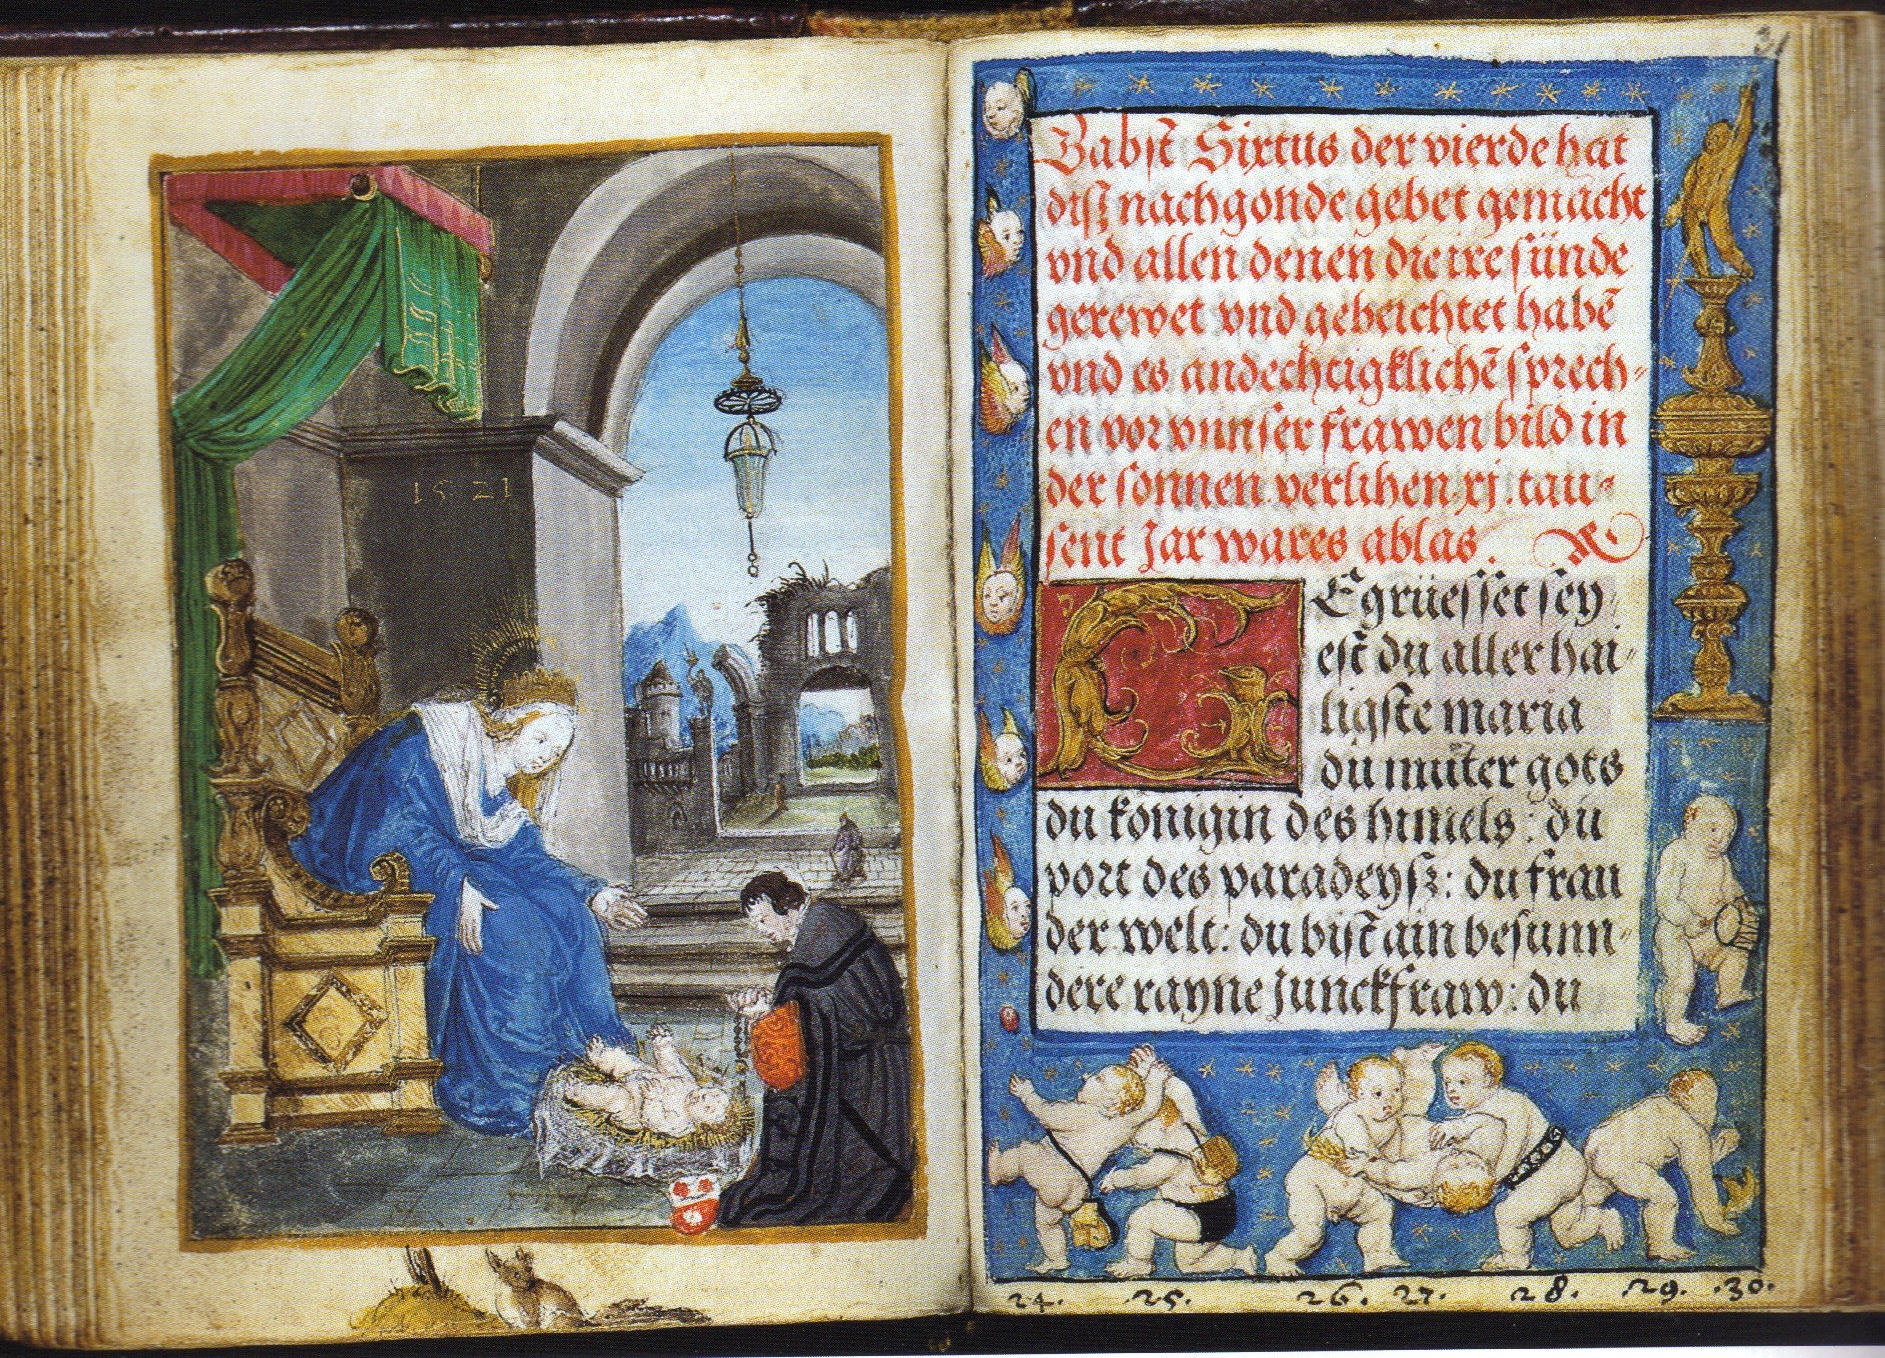 1521
31
Babst Sixtus der vierde hat
disz nachgonde gebet gemacht
vnd allen denen die ire sünde
gerewet vnd gebeichtet habē
vnd es andechtigklichē sprech-
en vor vnnser frawen bild in
der sonnen verlihen .xj. tau-
sent Jar wares ablas.
Egrüesset sey
est du aller hai-
ligste maria
du muͦter gots
du königin des himels: du
port des paradeysz: du frau
der welt: du bist ain besunn-
dere rayne Junckfraw: du
24. 25. 26. 27. 28. 29. 30.